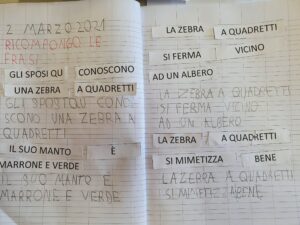 2 MARZO 2021
RICOMPONGO LE
FRASI
GLI SPOSI QU CONOSCONO
UNA ZEBRA A QUADRETTI
GLI SPOSTQU CONO
SCONO UNA ZEBRA A
QUADRETTI
IL SUO MANTO È
MARRONE E VERDE
IL SUO MANTO È
MARRONE E VERDE
LA ZEBRA A QUADRETTI
SI FERMA VICINO
AD UN ALBERO
LA ZEBRA A QUADRETTI
SI FERMA VICINO
AD UN ALBERO
LA ZEBRA A QUADRETTI
SI MIMETIZZA BENE
LA ZEBRA A QUADRETTI
SI MIMETIZZ ABENE